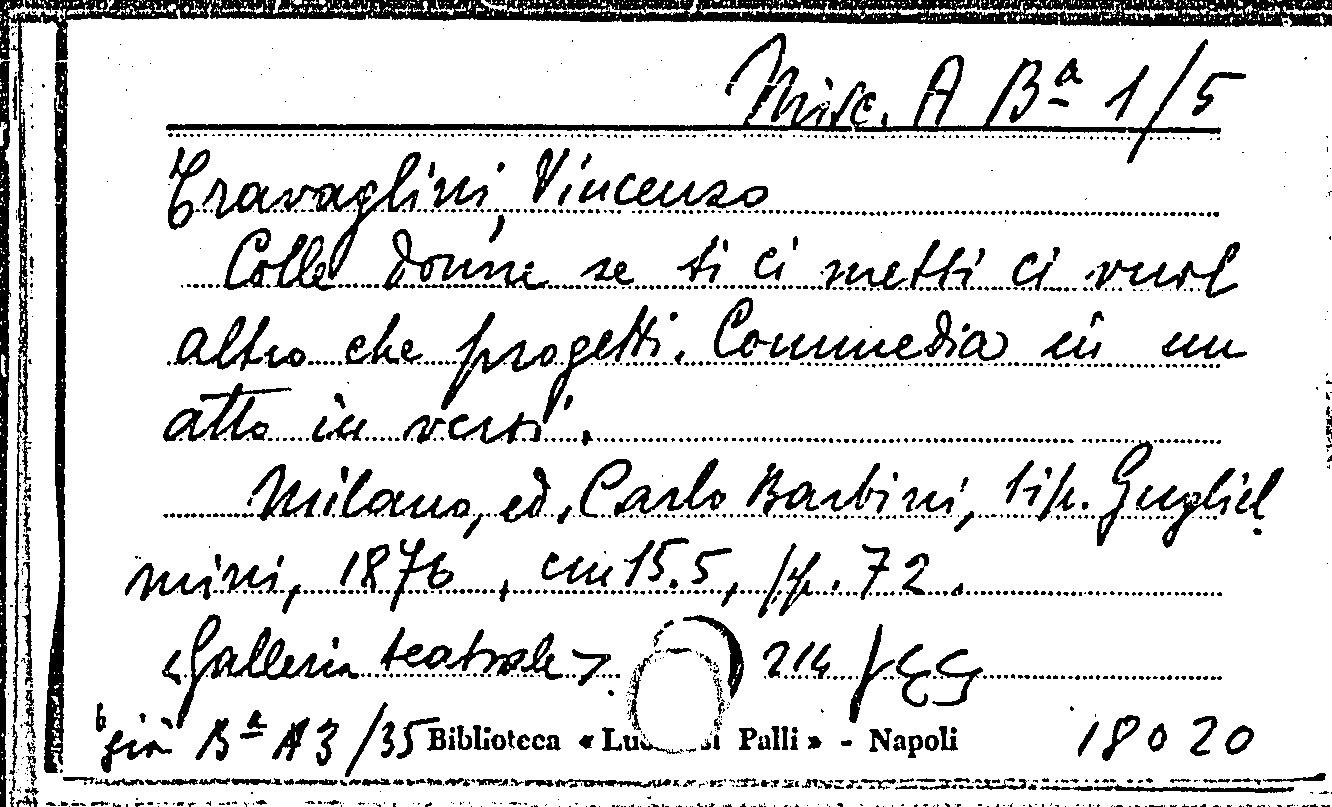 Misc. A Bª 1/5
Travaglini, Vincenzo
Colle donne se ti ci metti ci vuol
altro che progetti. Commedia in un
atto in versi.
Milano, ed. Carlo Barbini, tip. Gugliel
mini, 1876, cm 15.5, pp. 72.
«Galleria teatrale». 214
già Bª A3/35 Biblioteca « Lu si Palli » - Napoli 18020